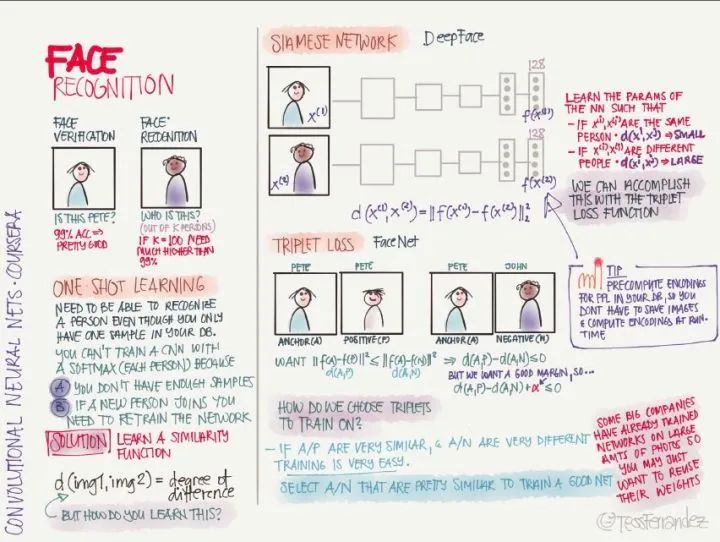 CONVOLUTIONAL NEURAL NETS · COURSERA
FACE
RECOGNITION
FACE
VERIFICATION
IS THIS PETE?
99% ACC ⇒
PRETTY GOOD
FACE
RECOGNITION
WHO IS THIS?
(OUT OF K PERSONS)
IF K=100 NEED
MUCH HIGHER THAN
99%
ONE SHOT LEARNING
NEED TO BE ABLE TO RECOGNIZE
A PERSON EVEN THOUGH YOU ONLY
HAVE ONE SAMPLE IN YOUR DB.
YOU CAN'T TRAIN A CNN WITH
A SOFTMAX (EACH PERSON) BECAUSE
A YOU DON'T HAVE ENOUGH SAMPLES
B IF A NEW PERSON JOINS YOU
NEED TO RETRAIN THE NETWORK
SOLUTION LEARN A SIMILARITY
FUNCTION
d(img1, img2) = degree of
difference
BUT HOW DO YOU LEARN THIS?
SIAMESE NETWORK DeepFace
X⁽¹⁾
128
f(X⁽¹⁾)
X⁽²⁾
128
f(X⁽²⁾)
d(X⁽¹⁾, X⁽²⁾) = ‖f(X⁽¹⁾) - f(X⁽²⁾)‖²₂
LEARN THE PARAMS OF
THE NN SUCH THAT
- IF X⁽ⁱ⁾, X⁽ʲ⁾ ARE THE SAME
PERSON · d(Xⁱ, Xʲ) ⇒ SMALL
- IF X⁽ⁱ⁾, X⁽ʲ⁾ ARE DIFFERENT
PEOPLE · d(Xⁱ, Xʲ) ⇒ LARGE
WE CAN ACCOMPLISH
THIS WITH THE TRIPLET
LOSS FUNCTION
TIP
PRECOMPUTE ENCODINGS
FOR PPL IN YOUR DB, SO YOU
DONT HAVE TO SAVE IMAGES
& COMPUTE ENCODINGS AT RUN-
TIME
TRIPLET LOSS FaceNet
PETE PETE PETE JOHN
ANCHOR(A) POSITIVE(P) ANCHOR(A) NEGATIVE(N)
WANT ‖f(A)-f(P)‖² ≤ ‖f(A)-f(N)‖² ⇒ d(A,P)-d(A,N)≤0
d(A,P) d(A,N) BUT WE WANT A GOOD MARGIN, SO...
d(A,P)-d(A,N)+α ≤0
HOW DO WE CHOOSE TRIPLETS
TO TRAIN ON?
- IF A/P ARE VERY SIMILAR, & A/N ARE VERY DIFFERENT
TRAINING IS VERY EASY.
SELECT A/N THAT ARE PRETTY SIMILAR TO TRAIN A GOOD NET
SOME BIG COMPANIES
HAVE ALREADY TRAINED
NETWORKS ON LARGE
AMTS OF PHOTOS SO
YOU MAY JUST
WANT TO REUSE
THEIR WEIGHTS
@TessFerrandez